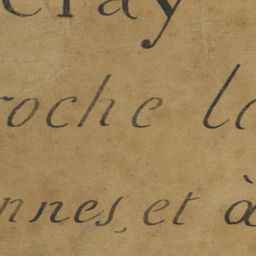 eray
roche la
nnes, et à